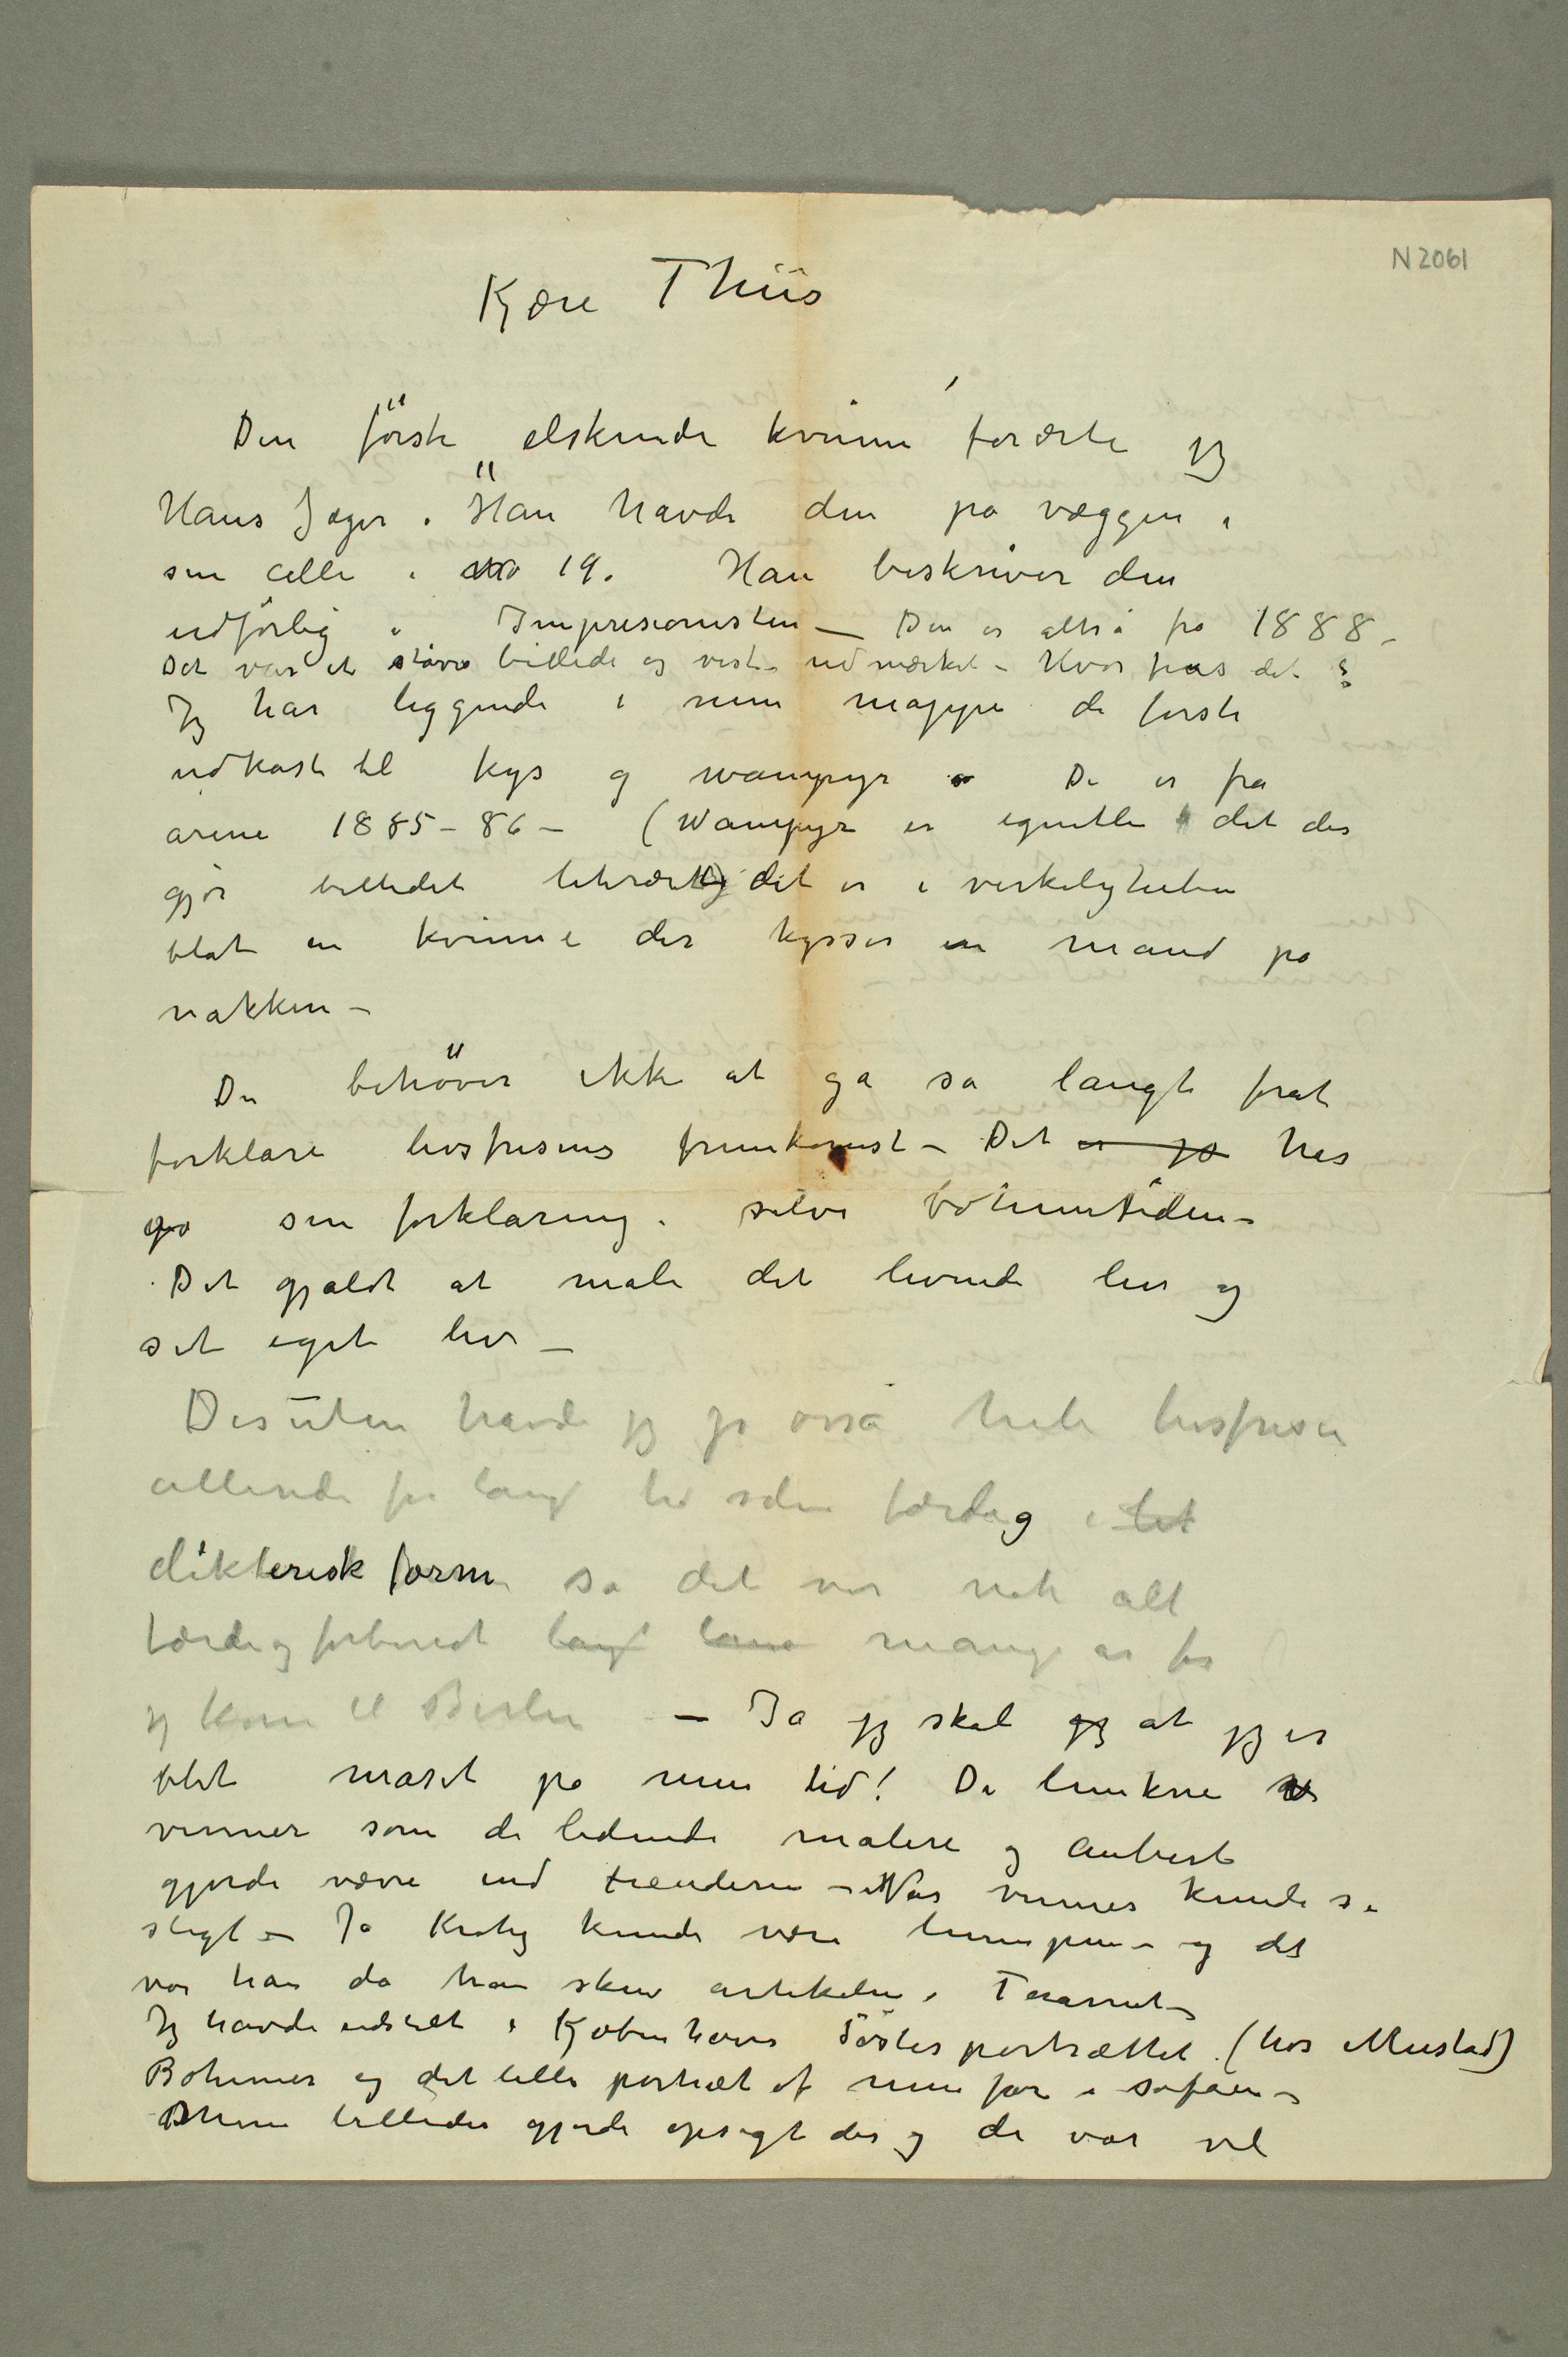 N 2061
Kjære Thiis
Den første „elskende kvinne“ forærte jeg
Hans Jæger. Han havde den på væggen i
sin celle i no 19. Han beskriver den
udførlig i Impresionisten – Den er altså fra 1888 –
Det var et større billede og vist udmærket – Hvor
Jeg har liggende i min mappe de første
udkast til kys og wampyr De er fra
årene 1885–86 – (Wampyr er egentli det der
gjør billedet literært) det er i virkeligheden
blot en kvinne der kysser en mand på
nakken –
Du behøver ikke at gå så langt forat
forklare livsfrisens fremkomst – Det er jo har
jo sin forklaring i selve bohemtiden –
Det gjaldt at male det levende liv og
sit eget liv –
Desuten havde jeg jo også hele livsfrisen
allerede for lang tid siden færdig i let
dikterisk form så det var nok alt
færdig forberedt langt mange år før
jeg kom til Berlin – Ja jeg skal at jeg er
blit maset på min tid! De lunkne
venner som de ledende malere og
gjorde værre end fienderne – Når venner kunde si
sligt – Ja Krohg kunde være lumpen – og det
var han da han skrev artikelen i Tararnet –
Jeg havde udstillet i Kjøbenhavn Søsterportrættet (hos Mustad)
Bohemer og det lille portræt af min far i sofaen –
Mine billeder gjorde opsigt der og de var vel